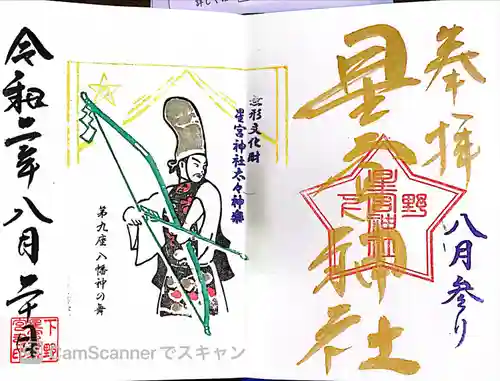 奉拝
星宮神社
下野
星宮神社
八月参り
無形文化財
星宮神社太々神楽
第九座 八幡神の舞
令和二年八月二十
CamScannerでスキャン